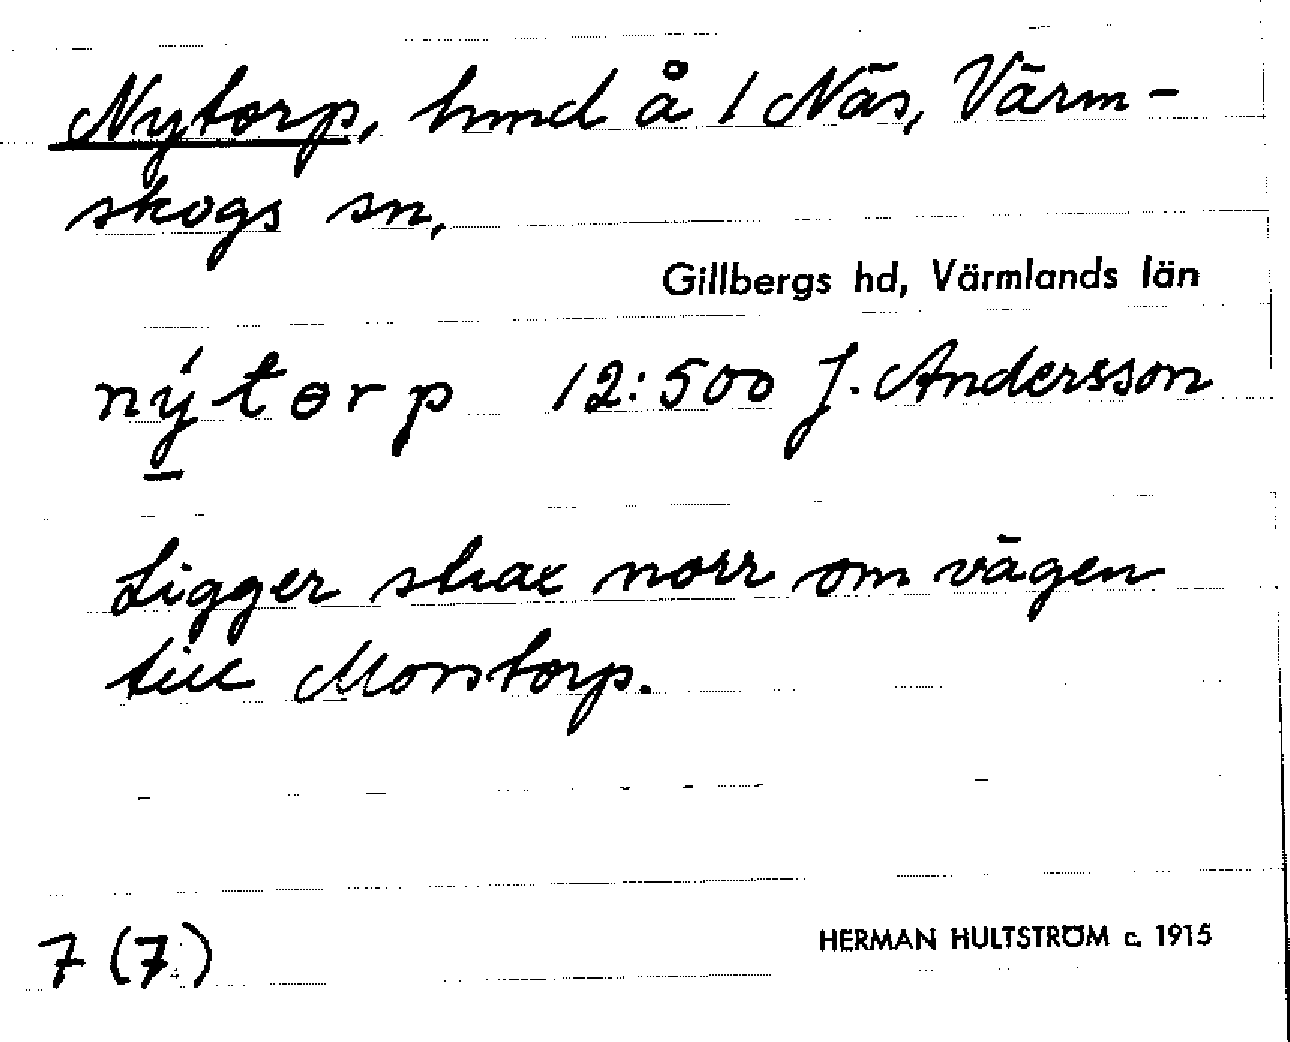 Nytorp, hmd å 1 Näs, Värm-
skogs sn,
Gillbergs hd, Värmlands län
ný̱tɵrp 12:500 J. Andersson
Ligger strax norr om vägen
till Morstorp.
7 (7)
HERMAN HULTSTRÖM c. 1915